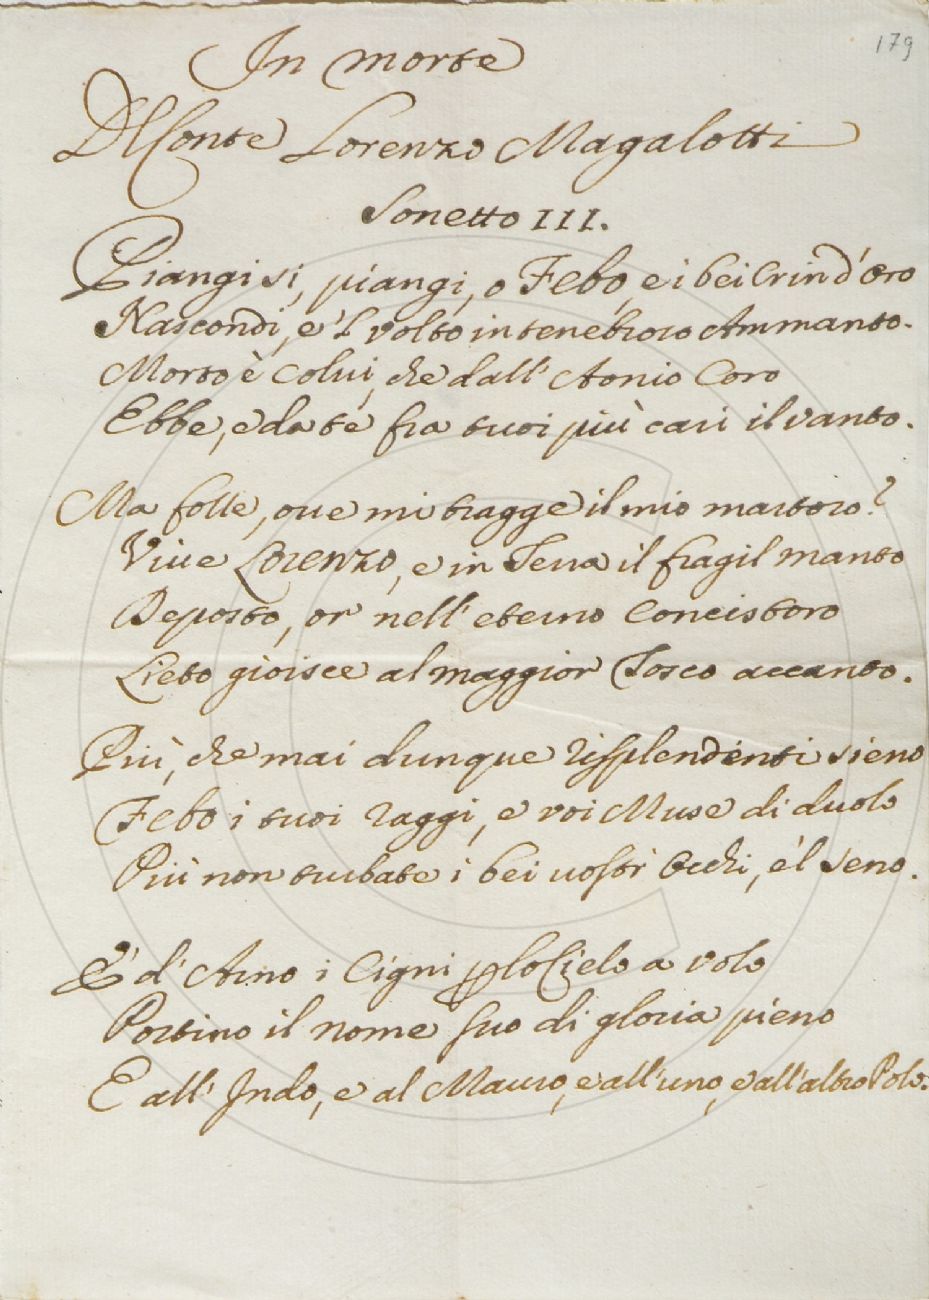 179
In morte
Del Conte Lorenzo Magalotti
Sonetto III.
Piangi sì, piangi, o Febo, e i bei Crin d'Oro
Nascondi, e 'l volto in tenebroso Ammanto.
Morto è Colui, che dall' Aonio Coro
Ebbe, e da te fra tuoi più cari il vanto.
Ma folle, ove mi tragge il mio martoro?
Vive Lorenzo, e in Terra il fragil manto
Deposto, or nell' eterno Concistoro
Lieto gioisce al maggior Tosco accanto.
Più, che mai dunque risplendenti sieno
Febo i tuoi raggi, e voi Muse di duolo
Più non turbate i bei vostri Occhi, e 'l seno.
E d' Arno i Cigni p lo Cielo a volo
Portino il nome suo di gloria pieno
E all' Indo, e al Mauro, e all' uno, e all' altro Polo.